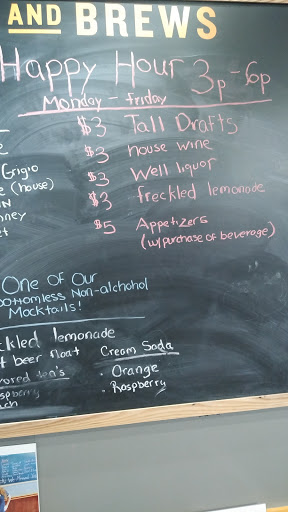 AND BREWS
Happy Hour 3p-6p
Monday - Friday
$3 Tall Drafts
$3 house wine
$3 Well liquor
$3 freckled lemonade
$5 Appetizers
(w/purchase of beverage)
Grigio
(house)
One Of Our
Non-alchohol
Mocktails!
lemonade
beer float
Cream Soda
. Orange
. Raspberry